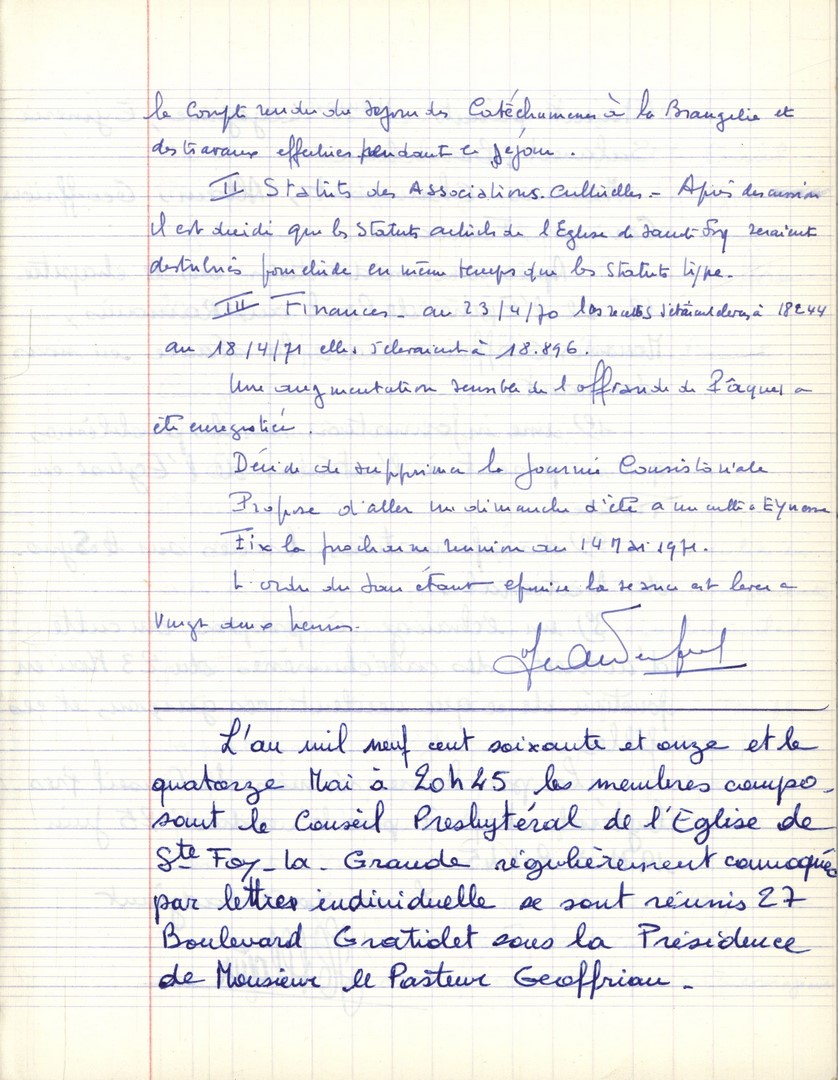 le Compte rendu du séjour des Catéchumènes à la Brangelie et
des travaux effectués pendant ce séjour.
II Statuts des Associations Cultuelles. - Après discussion
il est décidé que les Statuts actuels de l'Eglise de Sainte Foy seraient
distribués pour étude en même temps que les Statuts type.
III Finances - au 23/4/70 les recettes s'étaient élevées à 18244
au 18/4/71 elles s'élevaient à 18.896.
Une augmentation sensible de l'offrande de Pâques a
été enregistrée.
Décide de supprimer la Journée Consistoriale
Propose d'aller un dimanche d'été a un culte a Eynesse
Fixe la prochaine réunion au 14 Mai 1971.
L'ordre du jour étant épuisé la séance est levée a
vingt deux heures.
L'an mil neuf cent soixante et onze et le
quatorze Mai à 20h45 les membres compo-
sant le Conseil Presbytéral de l'Eglise de
Ste Foy-la-Grande régulièrement convoqués
par lettres individuelle se sont réunis 27
Boulevard Gratiolet sous la Présidence
de Monsieur le Pasteur Geoffriau -